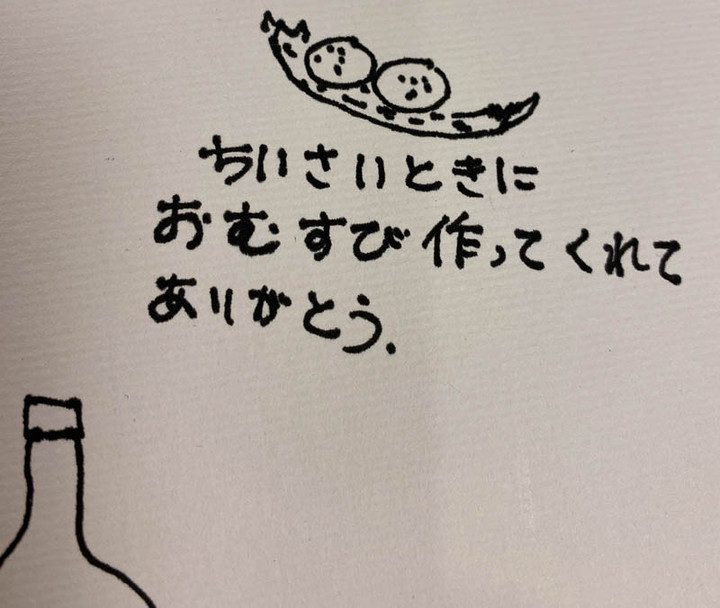 ちいさいときに
おむすび作ってくれて
ありがとう.